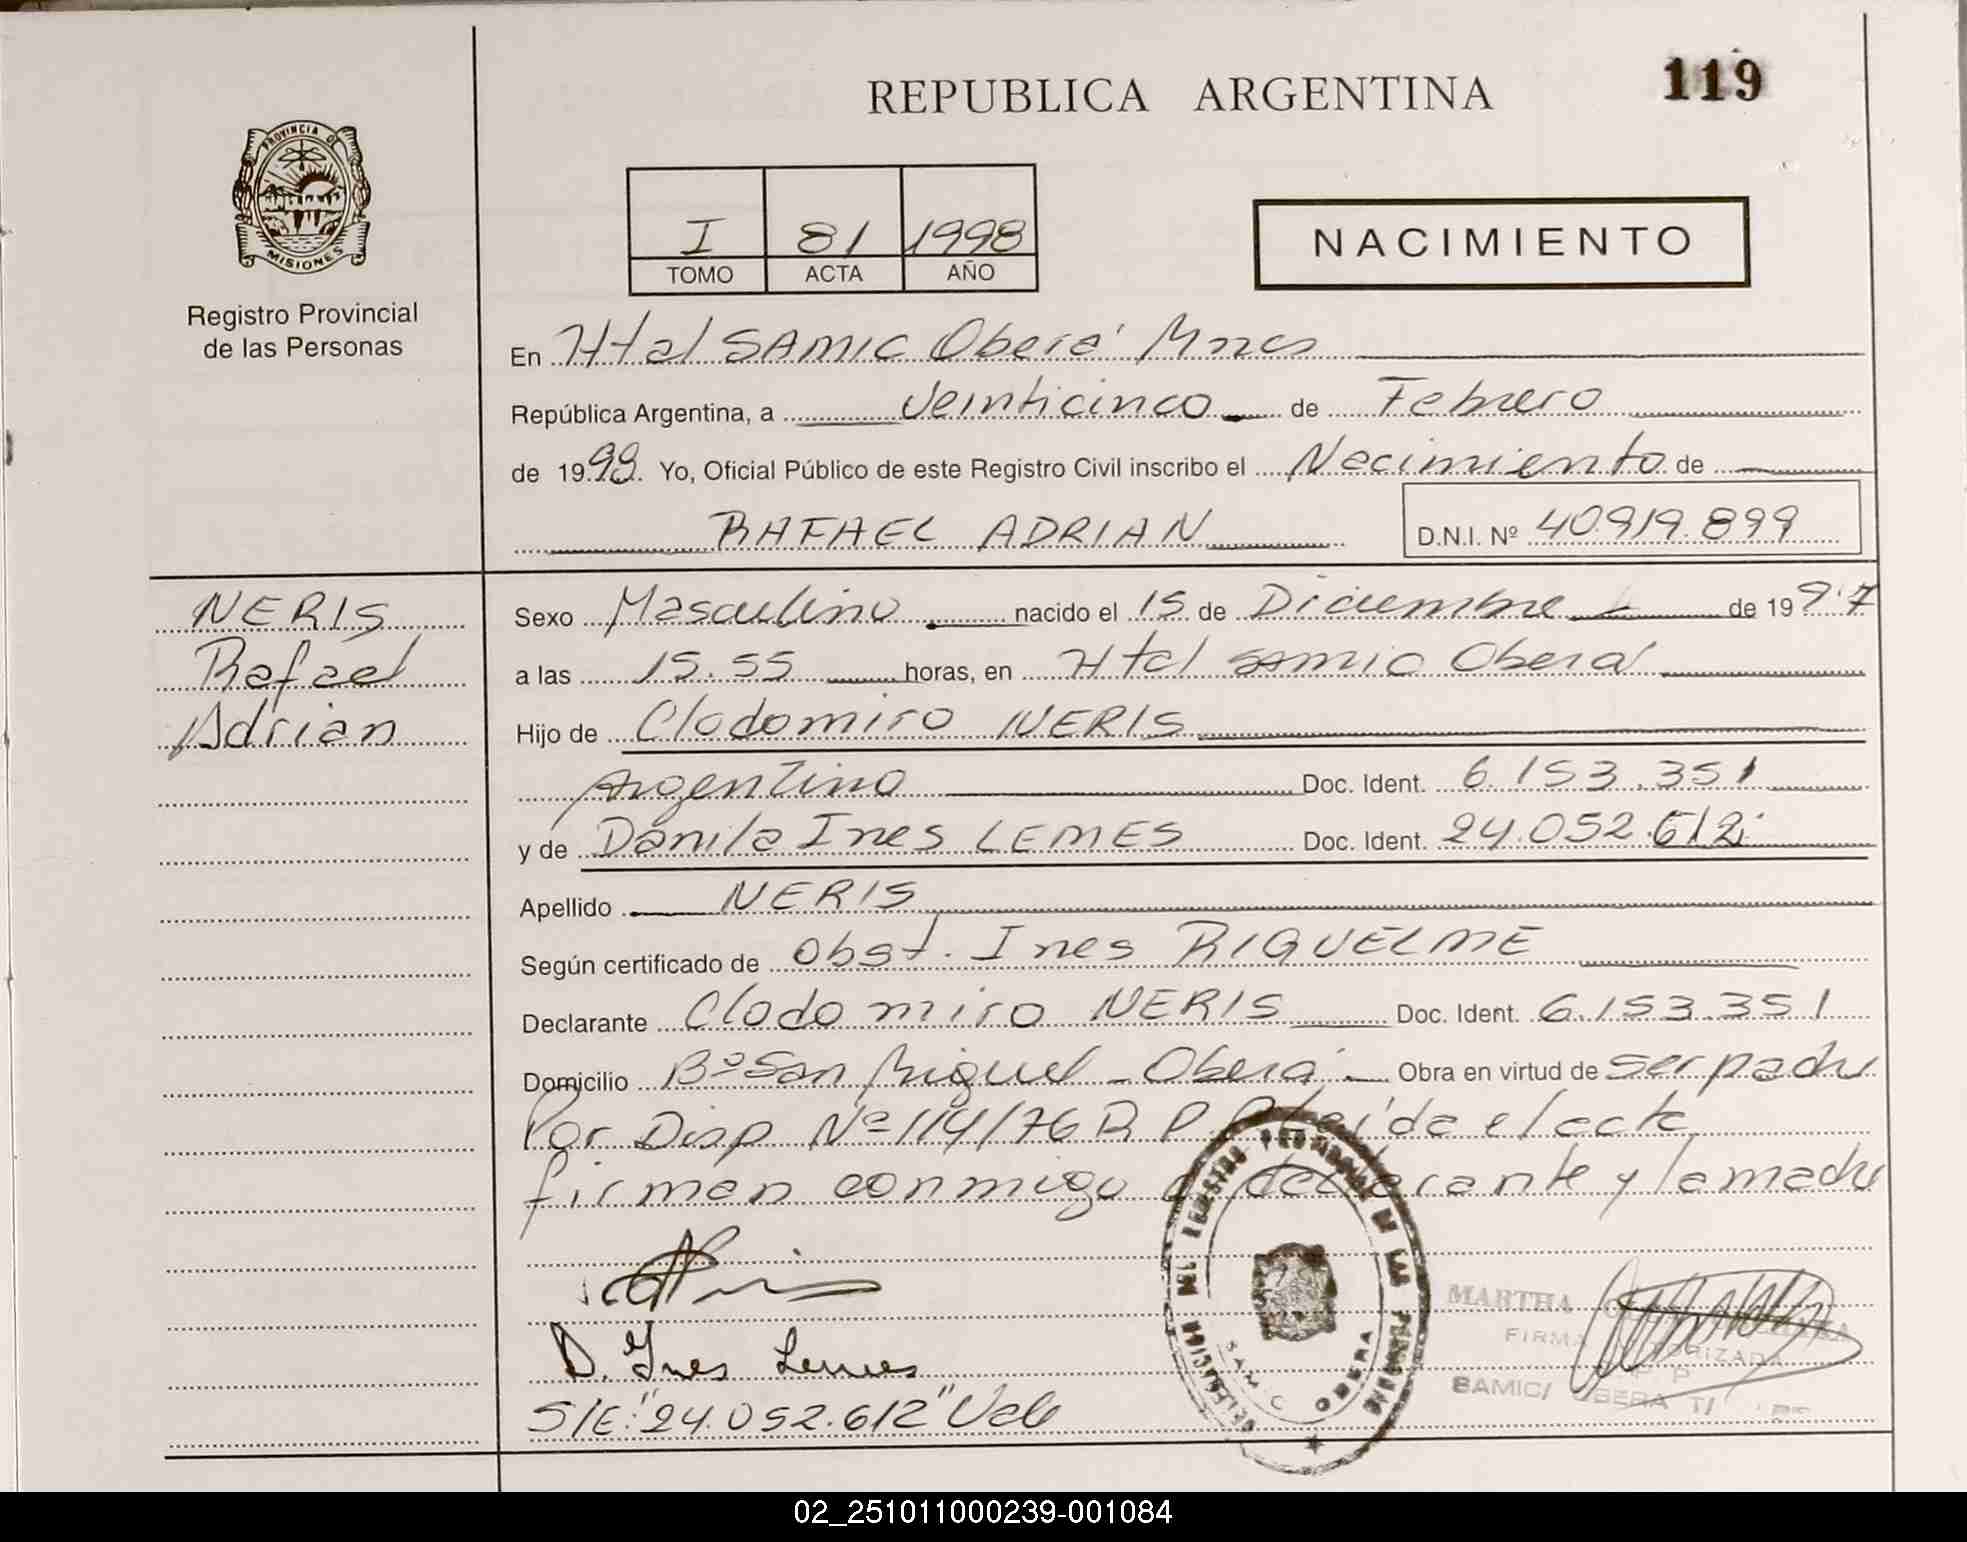 REPUBLICA ARGENTINA
119
PROVINCIA DE
MISIONES
Registro Provincial
de las Personas
I 81 1998
TOMO ACTA AÑO
NACIMIENTO
En Htal SAMIC Oberá Mnes
República Argentina, a veinticinco de Febrero
de 1998. Yo, Oficial Público de este Registro Civil inscribo el Nacimiento de
RAFAEL ADRIAN
D.N.I. Nº 40.919.899
NERIS
Rafael
Adrian
Sexo Masculino nacido el 15 de Diciembre de 1997
a las 15.55 horas, en Htal SAMIC Oberá
Hijo de Clodomiro NERIS
Argentino Doc. Ident. 6.153.351
y de Danila Ines LEMES Doc. Ident. 24.052.612
Apellido NERIS
Según certificado de Obst. Ines RIQUELME
Declarante Clodomiro NERIS Doc. Ident. 6.153.351
Domicilio Bº San Miguel - Oberá Obra en virtud de ser padre
Por Disp Nº 114/76 R P P leída el acta
firman conmigo el declarante y la madre
D. Ines Lemes
S/E: "24.052.612" Vale
DELEGACION DEL REGISTRO PROVINCIAL DE LAS PERSONAS
SAMIC OBERA
MARTHA
FIRMA AUTORIZADA
SAMIC OBERA
02_251011000239-001084